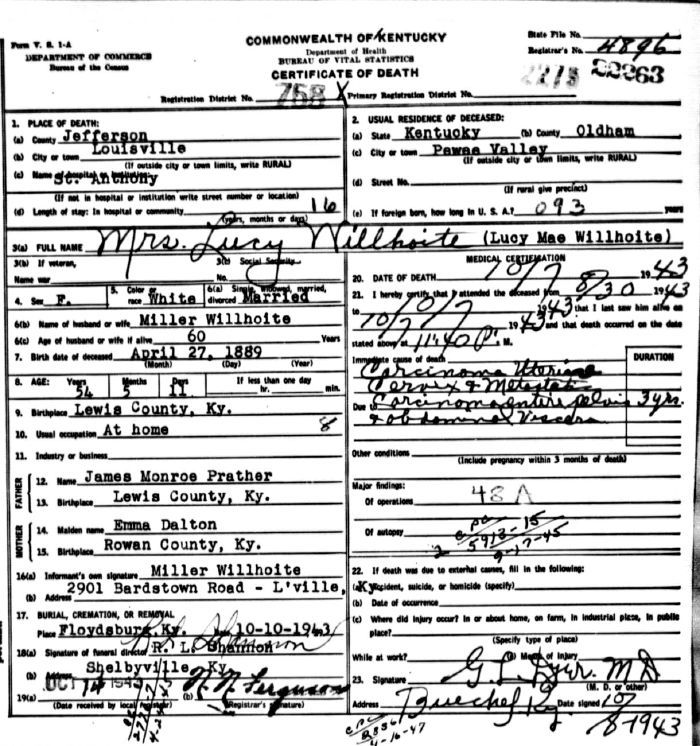 Form V. S. 1-A
DEPARTMENT OF COMMERCE
Bureau of the Census
COMMONWEALTH OF KENTUCKY
Department of Health
BUREAU OF VITAL STATISTICS
CERTIFICATE OF DEATH
State File No.
Registrar's No. 4896
22263
Registration District No. 758 X Primary Registration District No.
1. PLACE OF DEATH:
(a) County Jefferson
(b) City or town Louisville
(If outside city or town limits, write RURAL)
(c) Name of hospital or institution
St. Anthony
(If not in hospital or institution write street number or location)
(d) Length of stay: In hospital or community 16
(years, months or days)
2. USUAL RESIDENCE OF DECEASED:
(a) State Kentucky (b) County Oldham
(c) City or town Pewee Valley
(If outside city or town limits, write RURAL)
(d) Street No.
(If rural give precinct)
(e) If foreign born, how long in U. S. A.? 093 years
3(a) FULL NAME Mrs. Lucy Willhoite (Lucy Mae Willhoite)
3(b) If veteran,
Name war
3(c) Social Security
No.
4. Sex F. 5. Color or race White 6(a) Single, widowed, married, divorced Married
6(b) Name of husband or wife Miller Willhoite
6(c) Age of husband or wife if alive 60 Years
7. Birth date of deceased April 27, 1889
(Month) (Day) (Year)
8. AGE: Years Months Days If less than one day
54 5 11 hr. min.
9. Birthplace Lewis County, Ky.
10. Usual occupation At home 8
11. Industry or business
FATHER
12. Name James Monroe Prather
13. Birthplace Lewis County, Ky.
MOTHER
14. Maiden name Emma Dalton
15. Birthplace Rowan County, Ky.
16(a) Informant's own signature Miller Willhoite
(b) Address 2901 Bardstown Road - L'ville, Ky
17. BURIAL, CREMATION, OR REMOVAL
Place Floydsburg, Ky. 10-10-1943
18(a) Signature of funeral director R. L. Shannon
(b) Address Shelbyville, Ky.
19(a) OCT 14 1943 (b) N. N. Ferguson
(Date received by local registrar) (Registrar's signature)
MEDICAL CERTIFICATION
20. DATE OF DEATH 10/7 1943
21. I hereby certify that I attended the deceased from 8/30 1943
to 10/7 1943 that I last saw him alive on
10/7 1943 and that death occurred on the date
stated above at 11:40 P. M.
Immediate cause of death
Carcinoma Uterine
Cervix & Metastatic
Due to Carcinoma entire pelvis
& abdominal Viscera
DURATION
3 yrs.
Other conditions
(Include pregnancy within 3 months of death)
Major findings:
Of operations 48A
Of autopsy
5913-15
9-17-45
22. If death was due to external causes, fill in the following:
(a) Accident, suicide, or homicide (specify)
(b) Date of occurrence
(c) Where did injury occur? In or about home, on farm, in industrial place, in public
place?
(Specify type of place)
While at work? (e) Means of Injury
23. Signature G. L. Dyer. M D
(M. D. or other)
Address Buechel Ky. Date signed 10/
8-1943
4-16-47